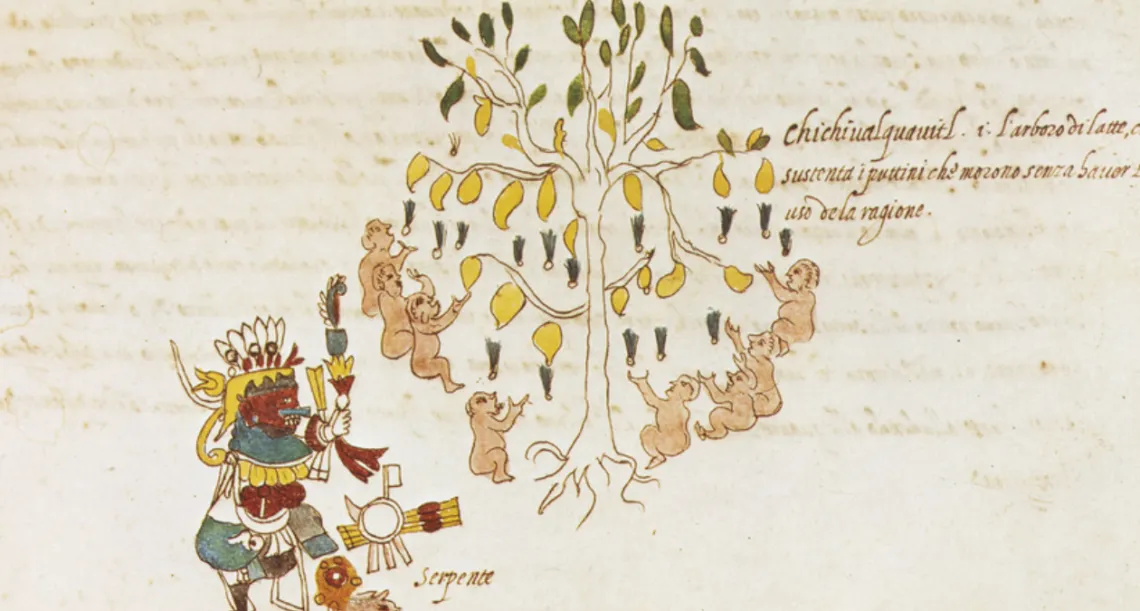 chichiualquauitl . i. l'arboro di latte, c
sustenta i puttini che morono senza hauer l
uso dela ragione.
Serpente